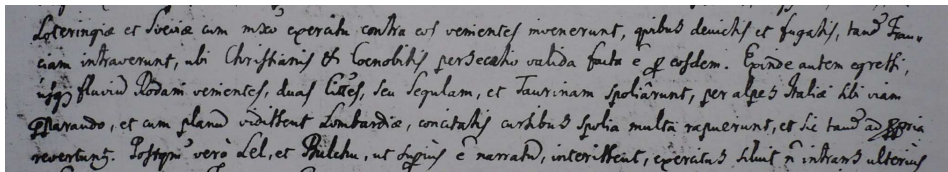 Loteringiæ et Sveviæ cum mãô exercitu contra eos venientes invenerunt, quibus devictis et fugatis, tand Fran-
ciam intraverunt, ubi Christianis et Coenobitis persecutio valida facta ē ꝑ eosdem. Exinde autem egressi,
usqꝫ fluviũ Rodani venientes, duas Cittes, seu Segulam, et Taurinam spoliârunt, per alpes Italiæ sibi viam
ꝑparando, et cum planũ vidissent Lombardiæ, concitatis cursibus spolia multa rapuerunt, et sic tand ad
revertunt. Postqm̃ verò Lel, et Bulchu, ut supius ē narratũ, interissent, exercitus siluit ñ intrans ulterius